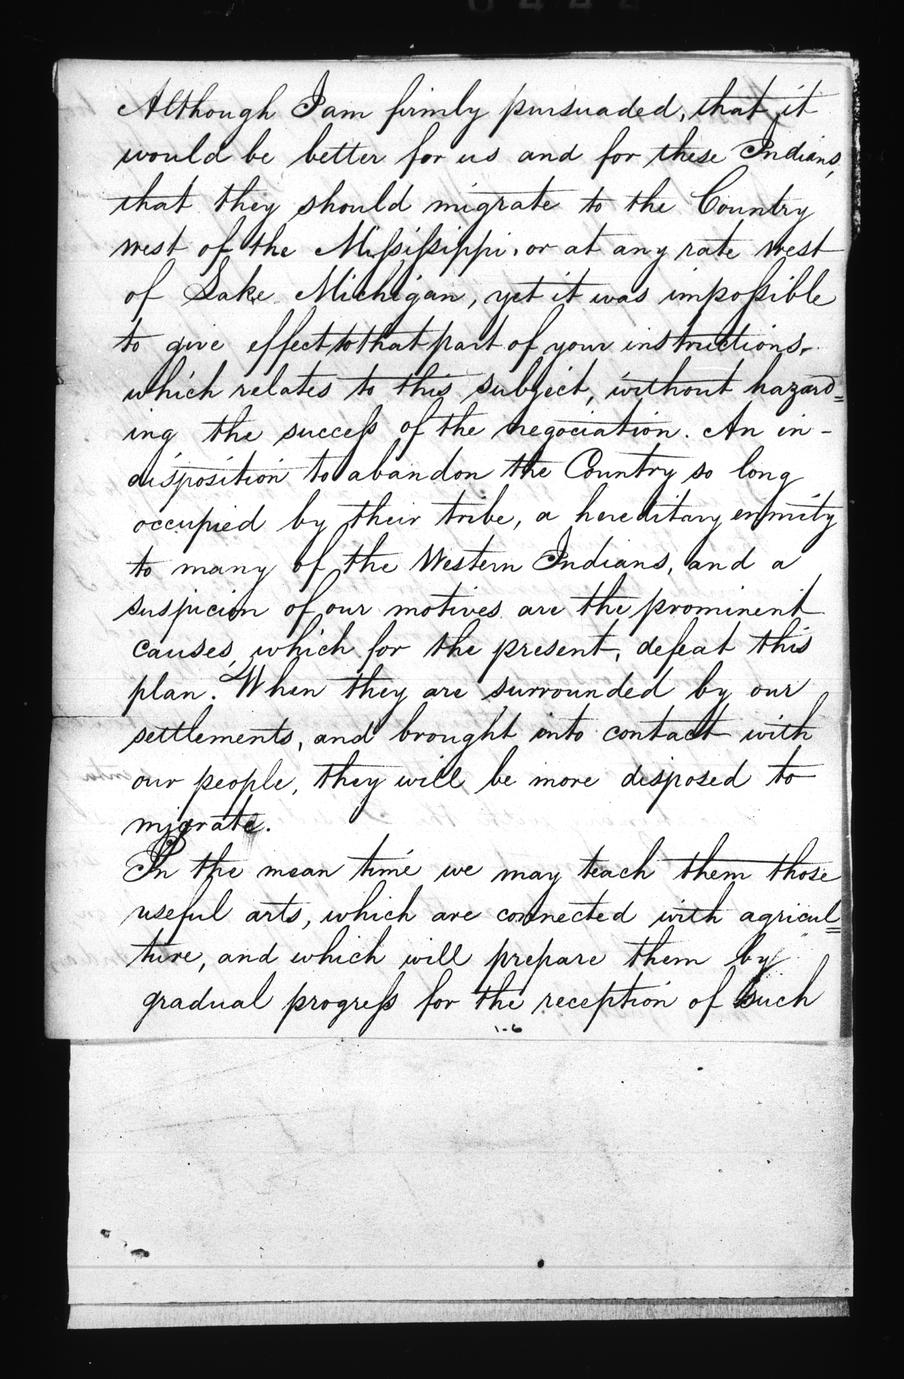 Although I am firmly pursuaded, that it
would be better for us and for these Indians,
that they should migrate to the Country
west of the Mississippi, or at any rate west
of Lake Michigan, yet it was impossible
to give effect to that part of your instructions,
which relates to this subject, without hazard=
ing the success of the negociation. An in-
disposition to abandon the Country so long
occupied by their tribe, a hereditary enmity
to many of the Western Indians, and a
suspicion of our motives are the prominent
causes, which for the present, defeat this
plan. When they are surrounded by our
settlements, and brought into contact with
our people, they will be more disposed to
migrate.
In the mean time we may teach them those
useful arts, which are connected with agricul=
ture, and which will prepare them by
gradual progress for the reception of such